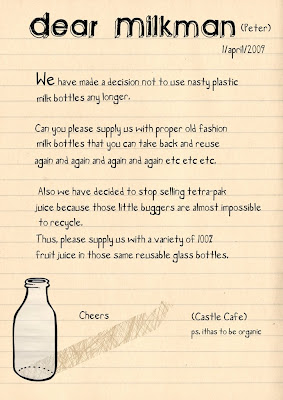 dear milkman (Peter)
1/april/2009
We have made a decision not to use nasty plastic
milk bottles any longer.
Can you please supply us with proper old fashion
milk bottles that you can take back and reuse
again and again and again and again etc etc etc.
Also we have decided to stop selling tetra-pak
juice because those little buggers are almost impossible
to recycle.
Thus, please supply us with a variety of 100%
fruit juice in those same reusable glass bottles.
Cheers
(Castle Cafe)
ps. ithas to be organic